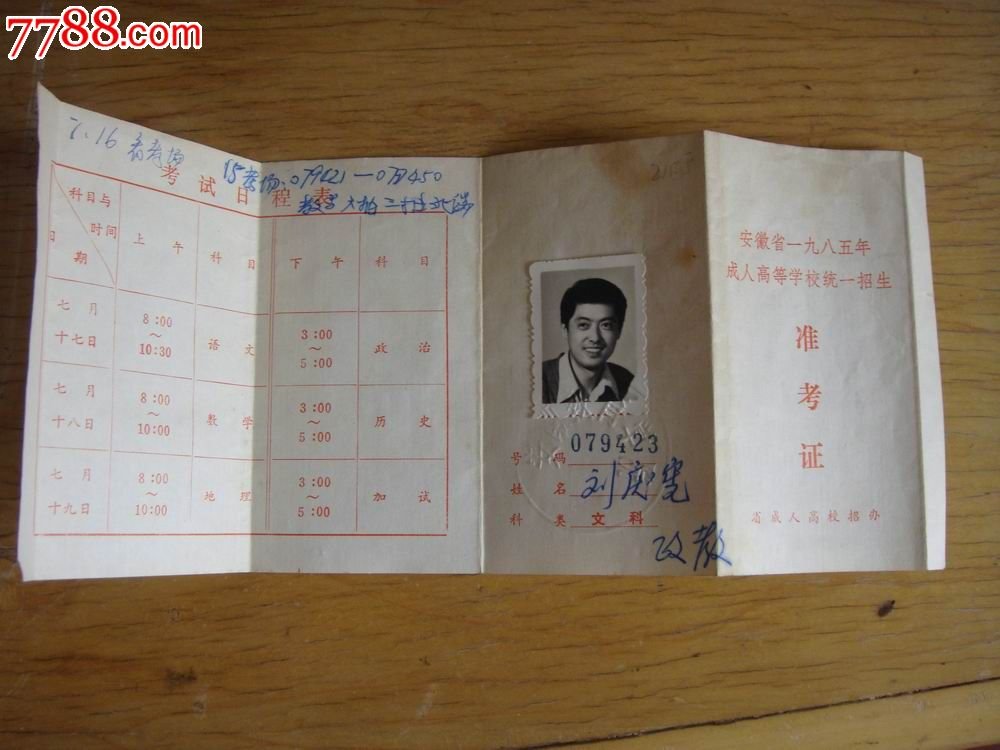 7788.com
7.16 看考场
15考场: 079421—079450
考试日程表
科目与
时间
日期
上午
科目
下午
科目
七月
十七日
8:00
~
10:30
语文
3:00
~
5:00
政治
七月
十八日
8:00
~
10:00
数学
3:00
~
5:00
历史
七月
十九日
8:00
~
10:00
地理
3:00
~
5:00
加试
号码 079423
姓名 刘庆宪
科类 文科
政教
安徽省一九八五年
成人高等学校统一招生
准考证
省成人高校招办